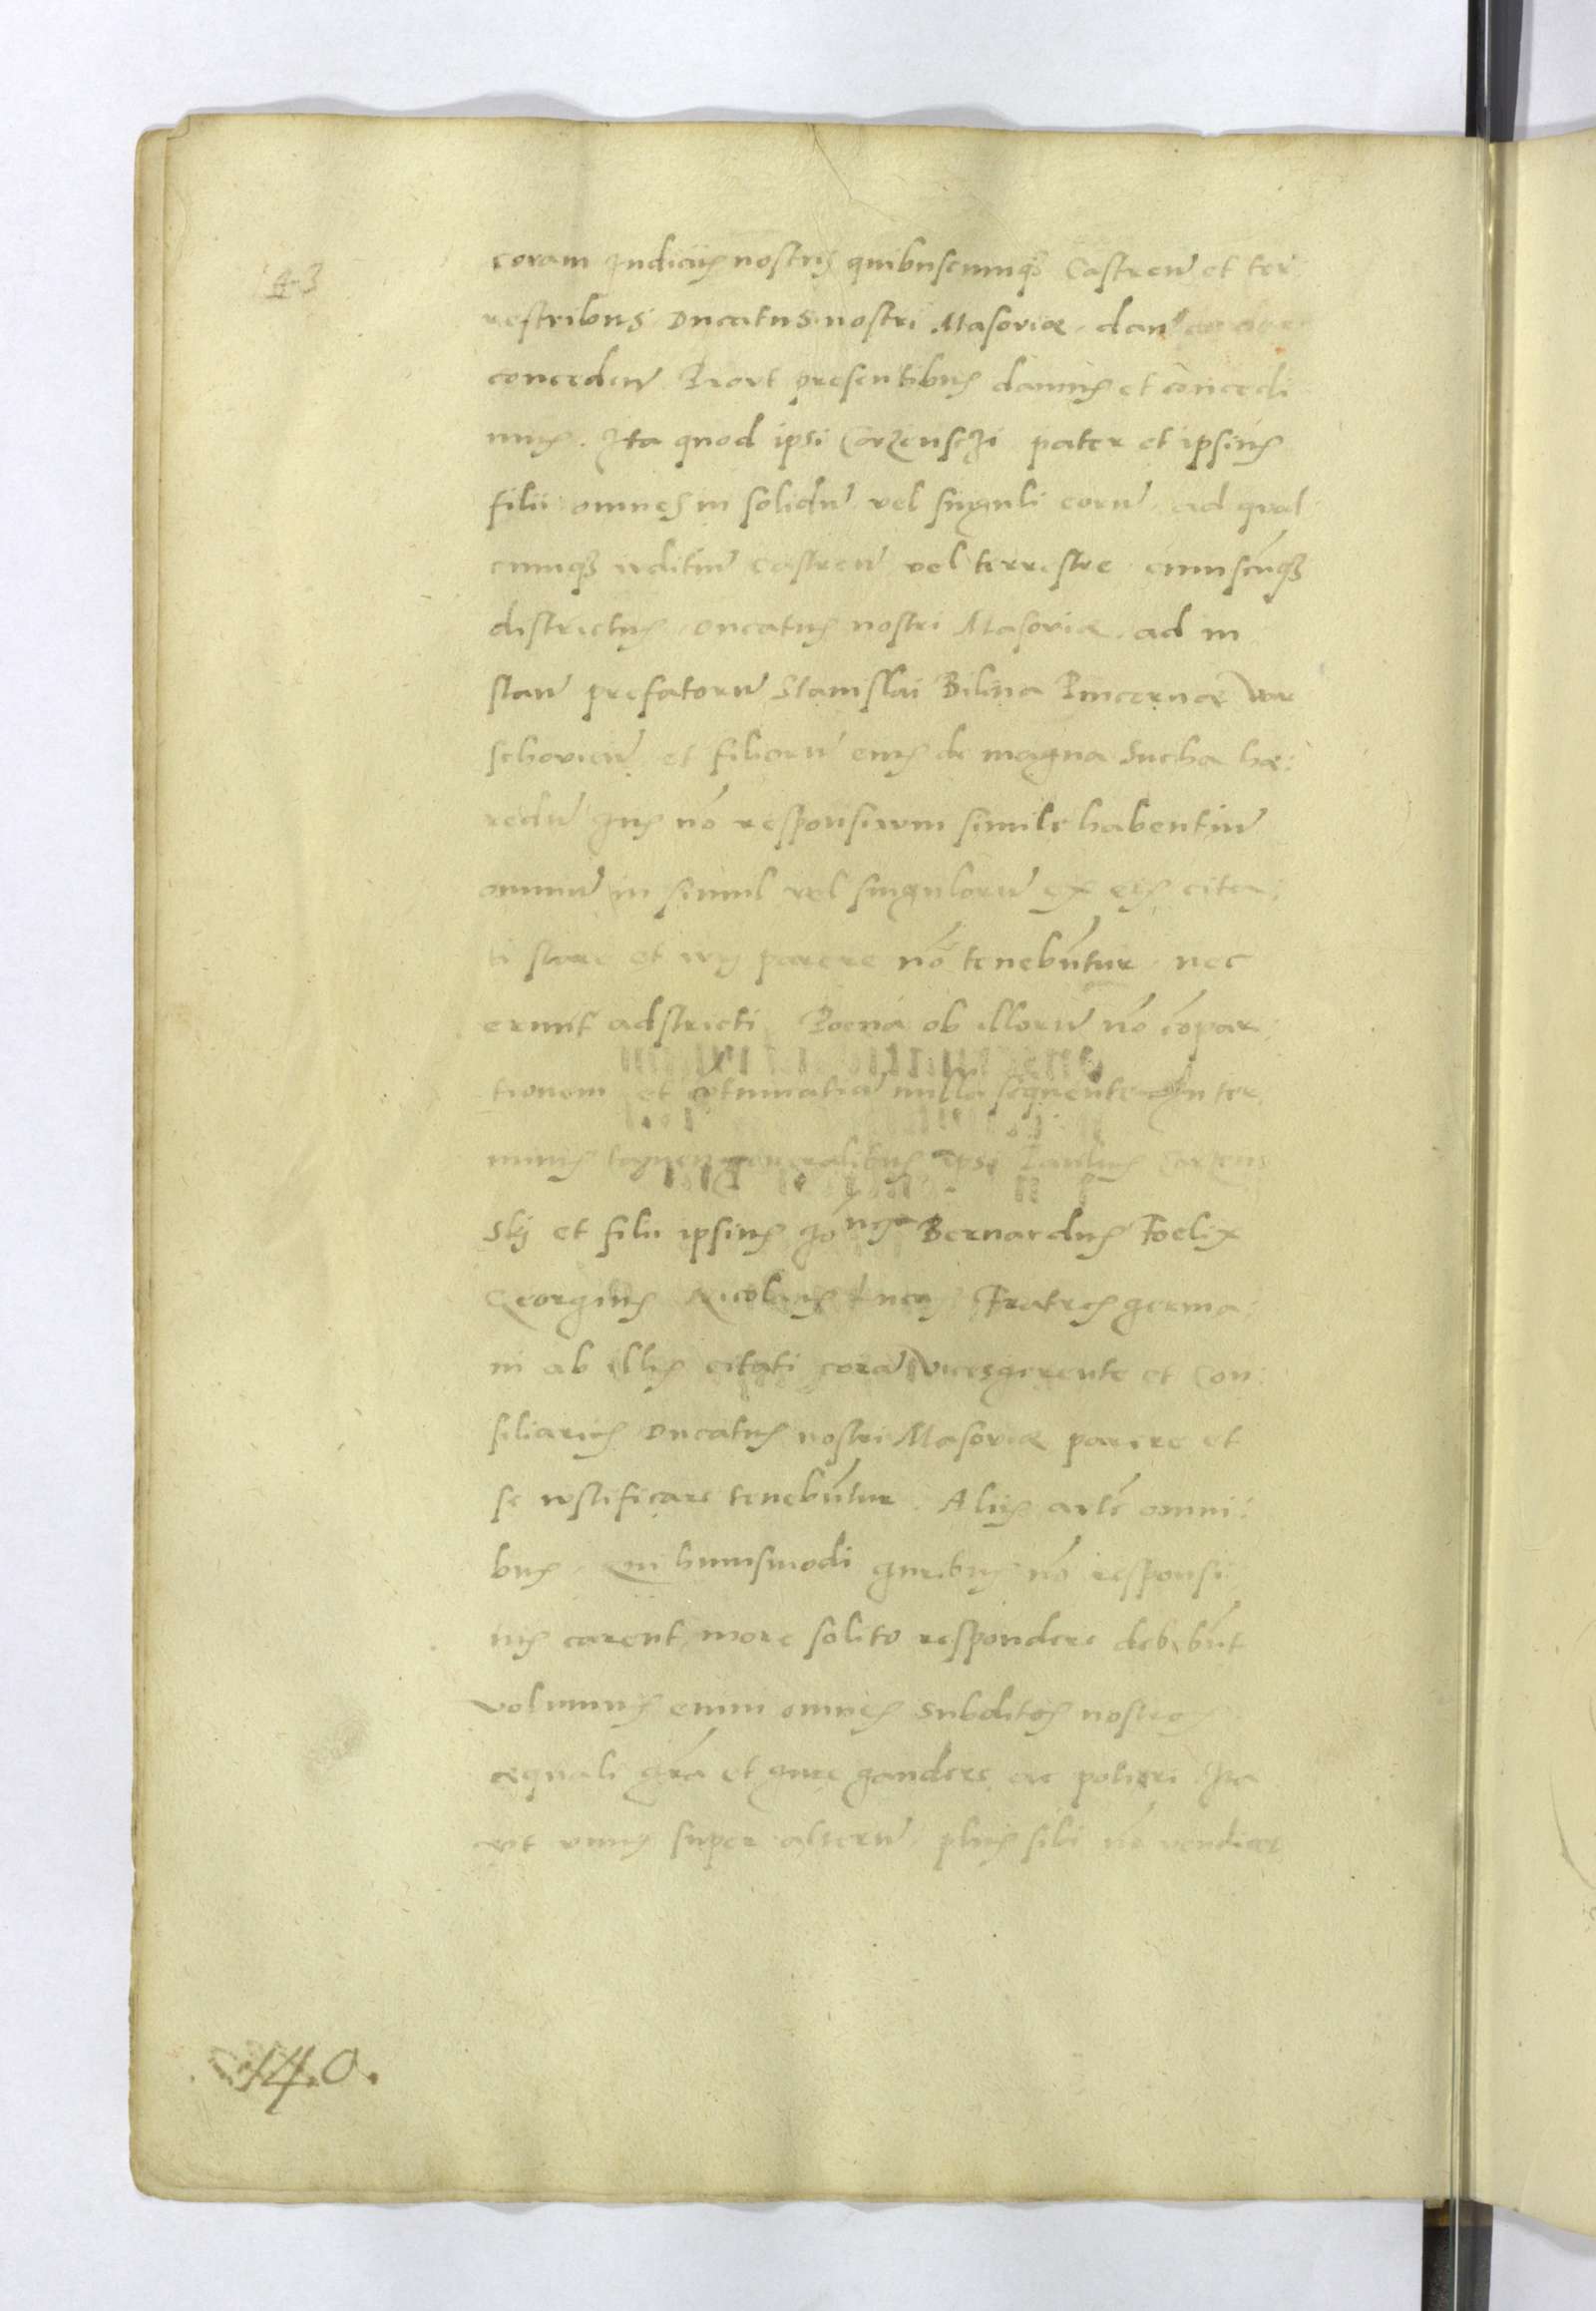 coram Judiciis nostris quibuscumqȝ Castren̄ et ter
restribus Ducatus nostri Masoviæ dan̄
conceden̄ Prout presentibus damus et concedi
mus. Ita quod ipsi Corzenszi pater et ipsius
filii omnes in solidū vel singuli eorū ad qual
cumqȝ iuditiū castren̄ vel terrestre cuiuscūqȝ
districtus Ducatus nostri Masoviæ ad in
stan̄ prefatorū Stanislai Bilina Pincernæ War
schovien̄ et filiorū eius de magna Sucha hæ:
redū Jus nō responsivum simile habentiū
omniū in simul vel singulorū ex eis cita:
ti stare et iuri parere nō tenebūtur nec
erunt adstricti Poena ob illorū nō cōpar
tionem et cōtumatiā nulla sequente In ter
minis tamen generalibus ipsi Paulus Corzens
skj et filii ipsius Joānes Bernardus Foelix
Georgius Nicolaus Lucas Fratres germa:
ni ab illis citati corā vicesgerente et Con:
siliariis Ducatus nostri Masoviæ parere et
se iustificare tenebūtur. Aliis autē omni:
bus. Qui huiusmodi Juribus nō responsi
uis carent more solito respondere debebūt
volumus enim omnes subditos nostros
æquali grā et Jure gaudere ac potiri Ita
vt vnus super alterū plus sibi nō vendicet
140.